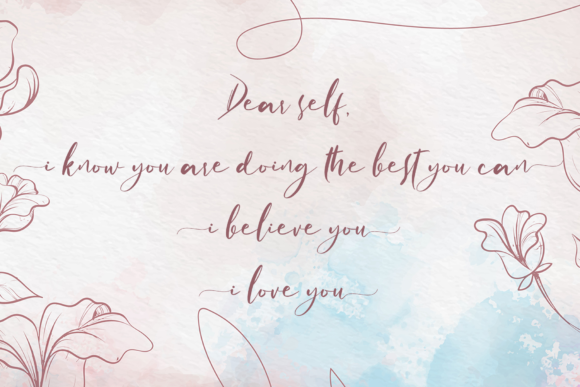 Dear self,
i know you are doing the best you can
i believe you
i love you